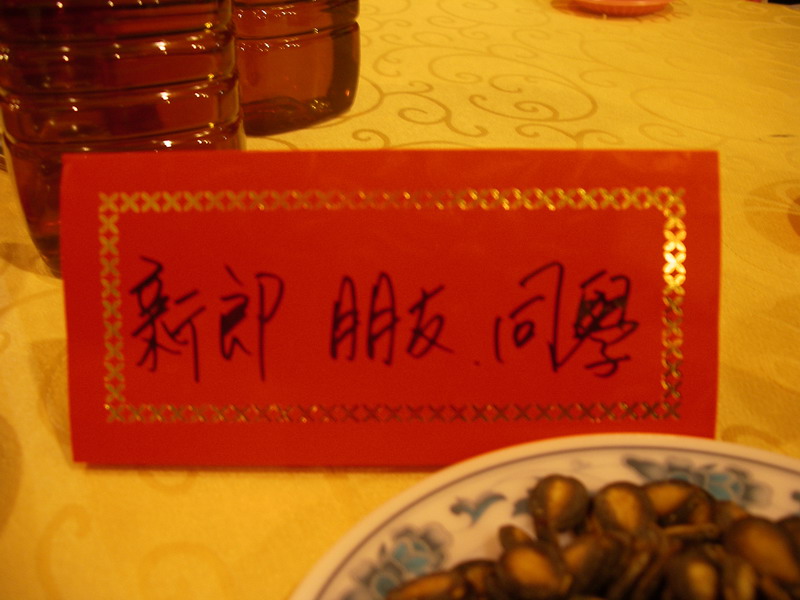 新郎 朋友.同學